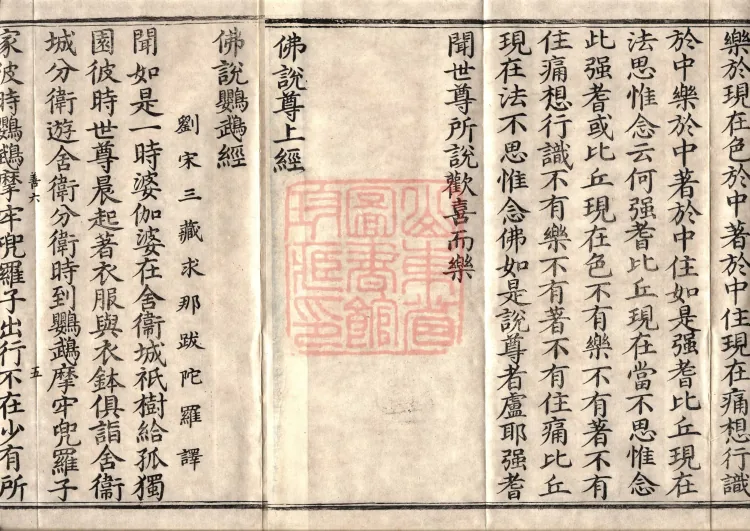 樂於現在色於中著於中住現在痛想行識
於中樂於中著於中住如是强耆比丘現在
法思惟念云何强耆比丘現在當不思惟念
此强耆或比丘現在色不有樂不有著不有
住痛想行識不有樂不有著不有住痛比丘
現在法不思惟念佛如是說尊者盧耶强耆
聞世尊所說歡喜而樂
佛說尊上經
佛說鸚鵡經
劉宋三藏求那跋陀羅譯
聞如是一時婆伽婆在舍衞城祇樹給孤獨
園彼時世尊晨起著衣服與衣鉢俱詣舍衞
城分衛遊舍衛分衛時到鸚鵡摩牢兜羅子
家彼時鸚鵡摩牢兜羅子出行不在少有所
善六
五
山東省圖書館